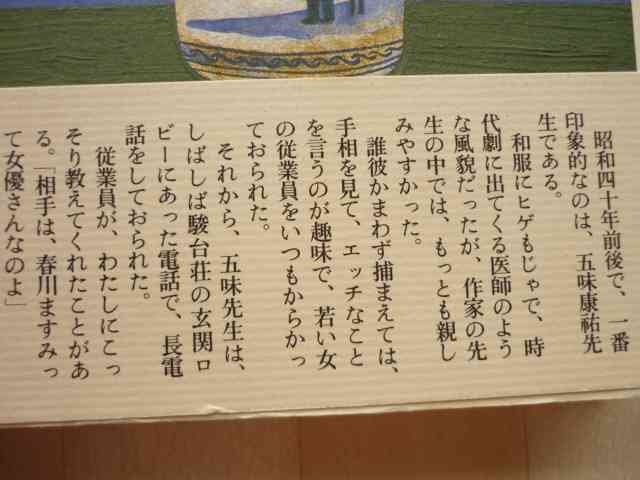 昭和四十年前後で、一番
印象的なのは、五味康祐先
生である。
和服にヒゲもじゃで、時
代劇に出てくる医師のよう
な風貌だったが、作家の先
生の中では、もっとも親し
みやすかった。
誰彼かまわず捕まえては、
手相を見て、エッチなこと
を言うのが趣味で、若い女
の従業員をいつもからかっ
ておられた。
それから、五味先生は、
しばしば駿台荘の玄関ロ
ビーにあった電話で、長電
話をしておられた。
従業員が、わたしにこっ
そり教えてくれたことがあ
る。「相手は、春川ますみっ
て女優さんなのよ」